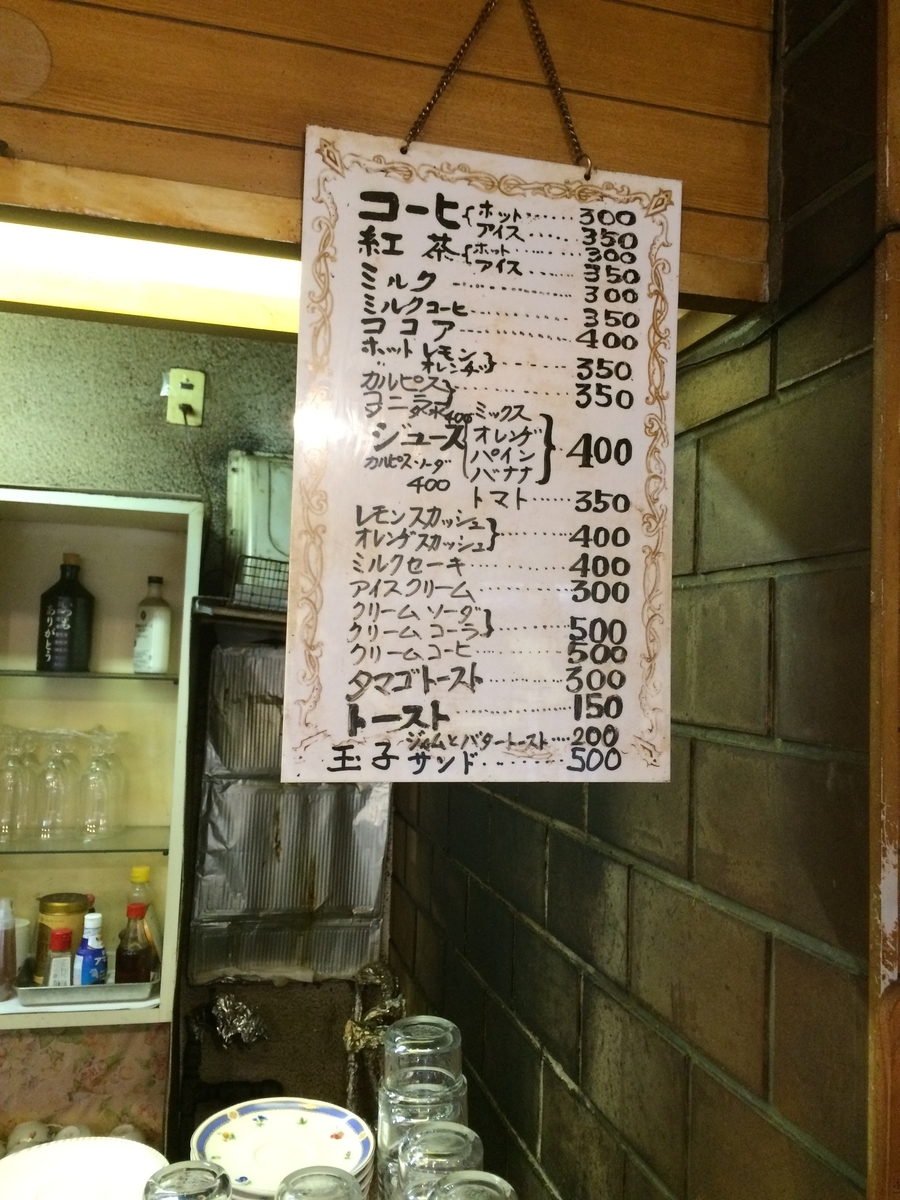 コーヒ{ホット……300
アイス……350
紅茶{ホット……300
アイス……350
ミルク……300
ミルクコーヒ……350
ココア……400
ホットレモン
〃オレンヂ}……350
カルピス
コーラ}……350
400 ミックス
ジュース{オレンヂ
パイン
バナナ}400
カルピスソーダ
400
トマト……350
レモンスカッシュ
オレンヂスカッシュ}……400
ミルクセーキ……400
アイスクリーム……300
クリームソーダ
クリームコーラ}……500
クリームコーヒ……500
タマゴトースト……300
トースト……150
ジャムとバタートースト……200
玉子サンド……500
ありがとう